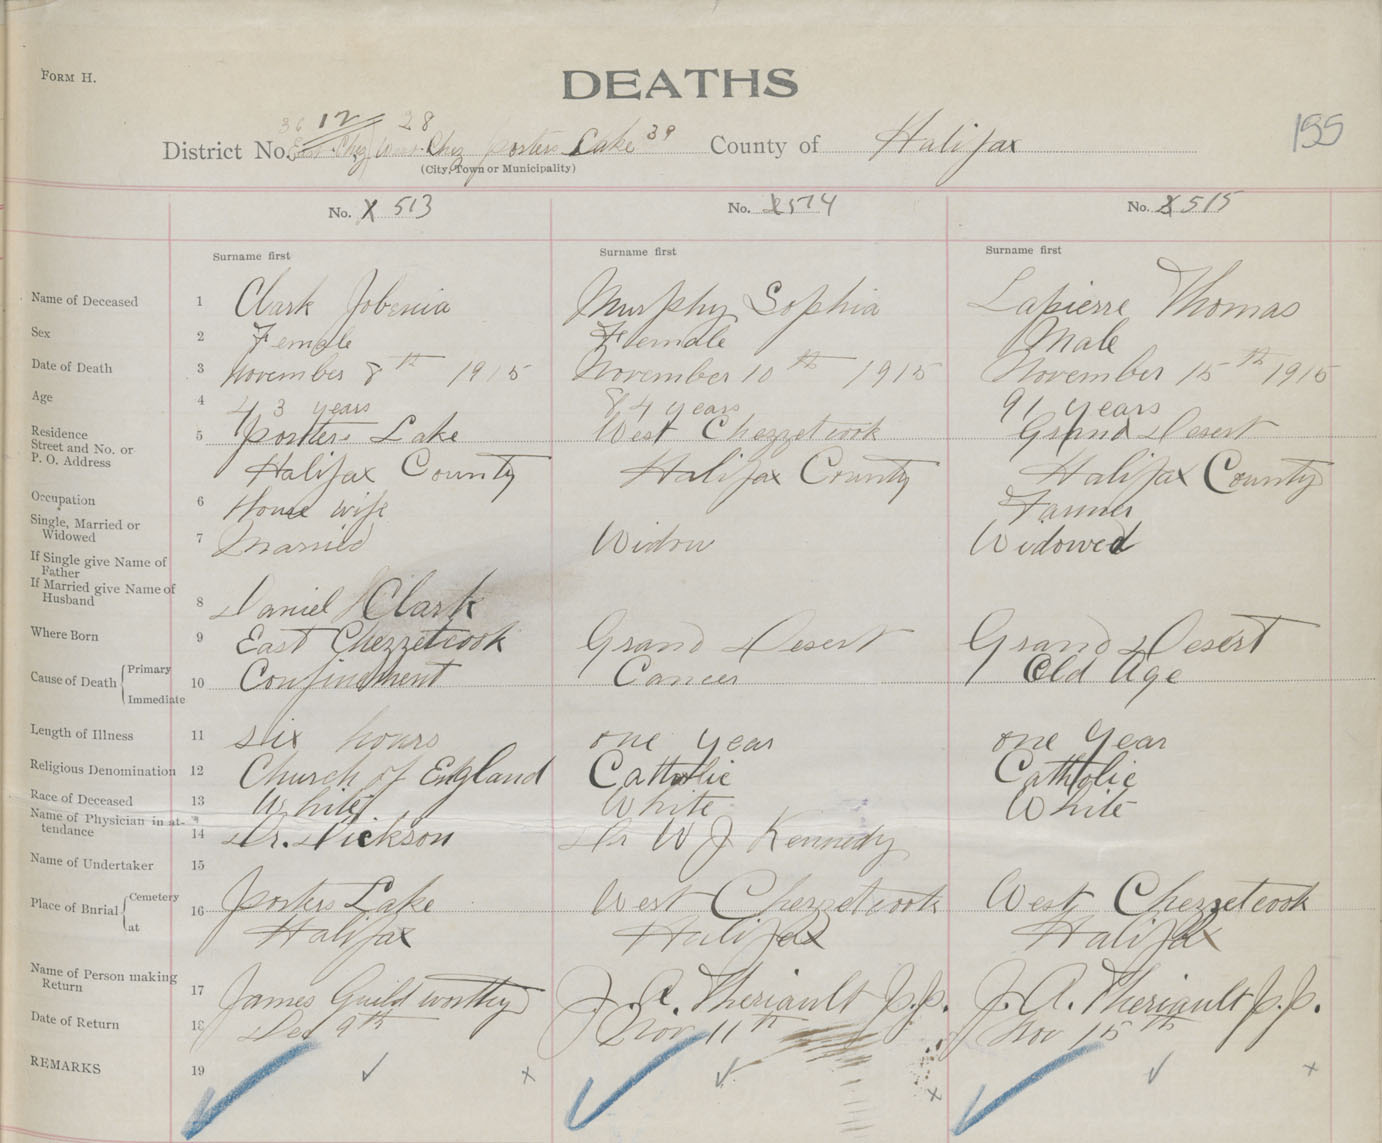 FORM H.
DEATHS
155
36 12 28
District No. East Chez West Chez Porters Lake 39 County of Halifax
(City, Town or Municipality)
No. X 513 No. X 514 No. X 515
Surname first Surname first Surname first
Name of Deceased 1 Clark Jobenia Murphy Sophia Lapierre Thomas
Sex 2 Female Female Male
Date of Death 3 November 8th 1915 November 10th 1915 November 15th 1915
Age 4 43 years 84 years 91 years
Residence Street and No. or P. O. Address 5 Porters Lake West Chezzetcook Grand Desert
Halifax County Halifax County Halifax County
Occupation 6 House wife Farmer
Single, Married or Widowed 7 Married Widow Widowed
If Single give Name of Father
If Married give Name of Husband 8 Daniel Clark
Where Born 9 East Chezzetcook Grand Desert Grand Desert
Cause of Death Primary Immediate 10 Confinement Cancer Old Age
Length of Illness 11 six hours one year one year
Religious Denomination 12 Church of England Catholic Catholic
Race of Deceased 13 White White White
Name of Physician in attendance 14 Dr. Dickson Dr W J Kennedy
Name of Undertaker 15
Place of Burial Cemetery at 16 Porters Lake West Chezzetcook West Chezzetcook
Halifax Halifax Halifax
Name of Person making Return 17 James Guildworthy J. A. Theriault J.P. J. A. Theriault J.P.
Date of Return 18 Dec 9th Nov 11th Nov 15th
REMARKS 19 x x x